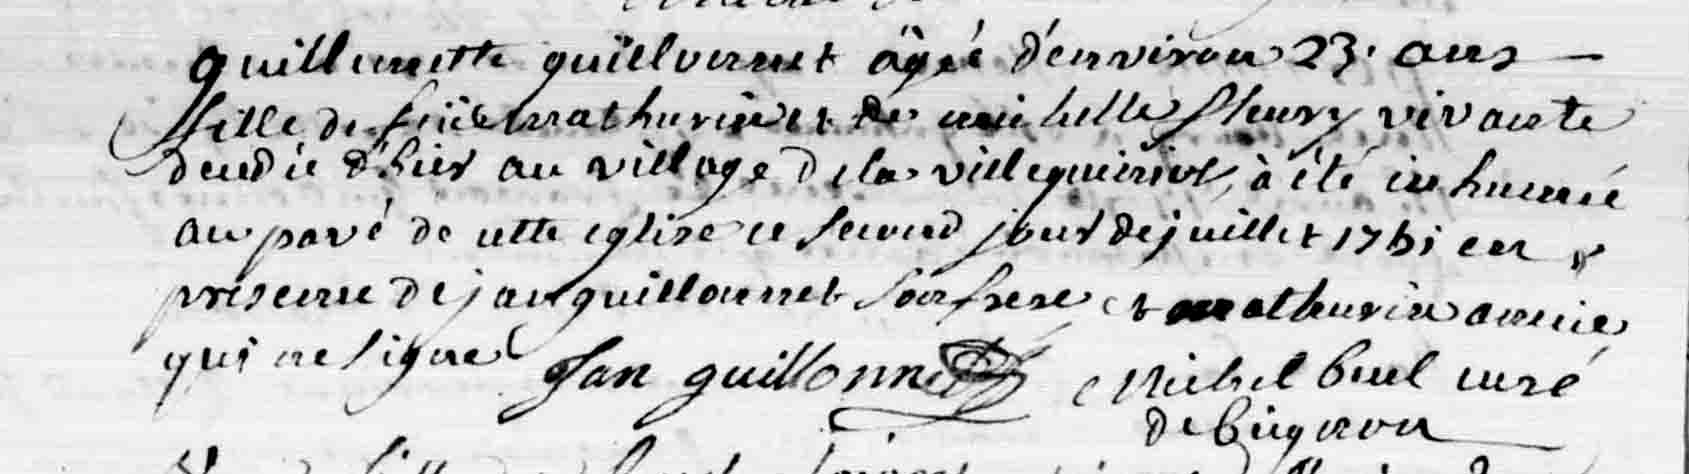 Guillemette guillonnet âgée d'environ 23 ans
fille de feüe mathurin et de michelle fleury vivante
deudée d'hier au village de la ville quiriot, à été inhumé
au pavé de cette eglise ce second jour de juillet 1751 en
presence de jan guillonnet son frere et mathurin amice
qui ne signe
Jan guillonnet Michel buel curé
de bignon